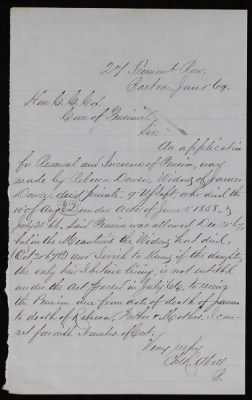 27 Tremont Row.
Boston June 1 69.
Hon. C. C. Cox.
Com of Pensions,
Sir;
An application
for Renewal and Increase of Pension, was
made by Rebecca Dowse, Widow of James
Dowse, dec'd private, 9 U.S. Inft, who died the
10 of Aug under Acts of June 3 1858, &
July 25 66, Said Pension was allowed Dec 2 67,
but in the Meantime the Widow had died,
(Oct 21 1867) and I wish to know if the daughter,
the only heir I believe living, is not entitled
under the Act passed in July 66, to receive
the Pension due from date of death of James
to death of Rebecca, Father & Mother. I can
not furnish Number of Cert.
Yours respy